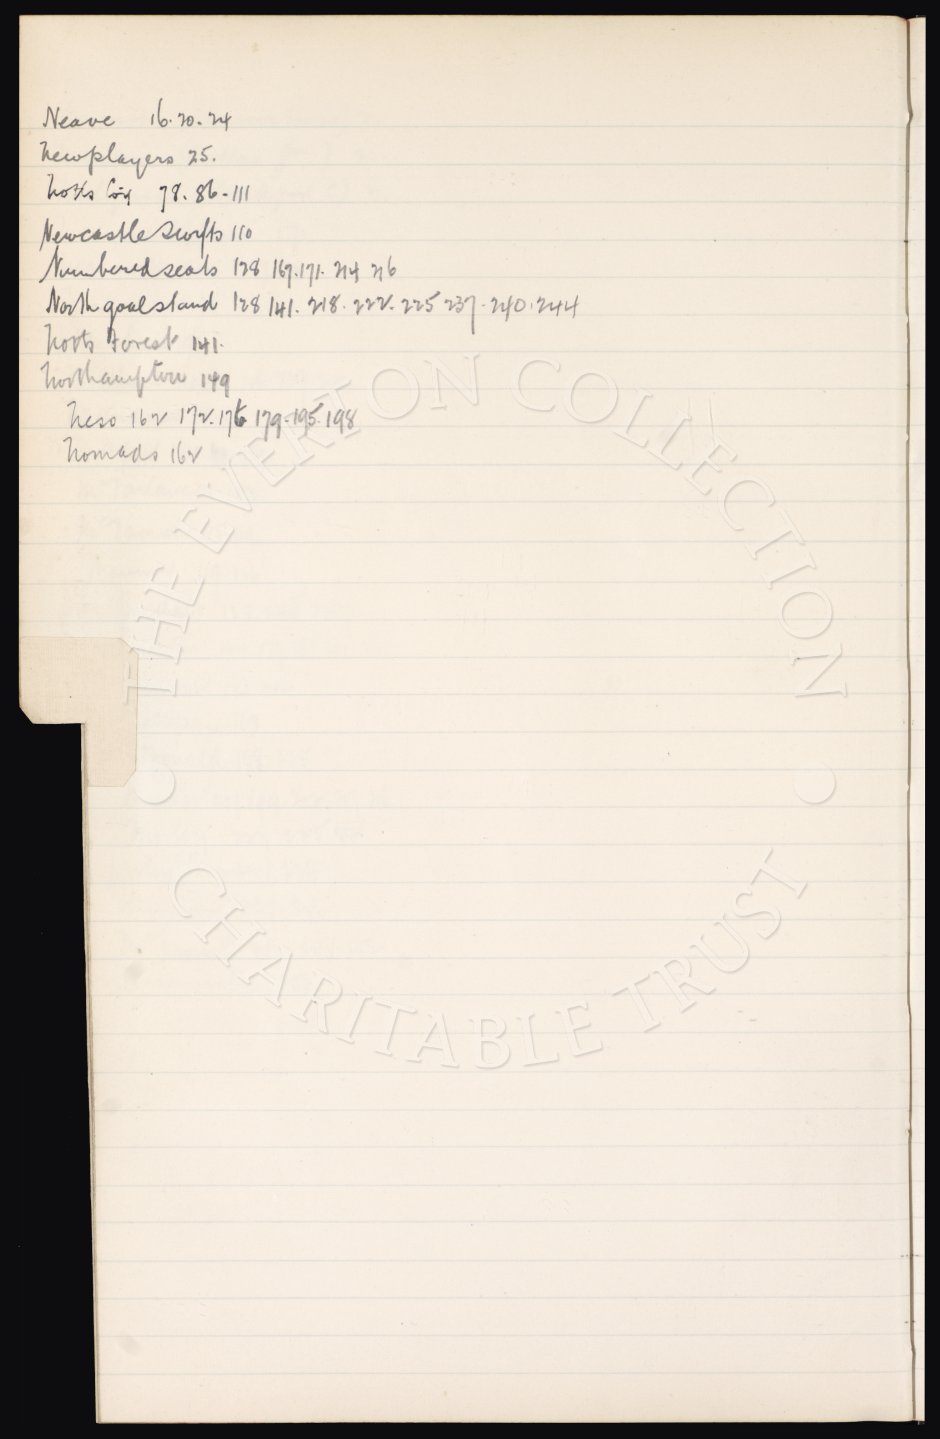 Neave 16. 20. 24
New players 25.
Notts Co'y 78. 86 - 111
Newcastle Swifts 110
Numbered seats 128 167. 171. 214 216
North goal stand 128 141. 218. 222. 225 237. 240. 244
Notts Forest 141.
Northampton 149
Neso 162 172. 176 179. 195. 198
Nomads 162
THE EVERTON COLLECTION
CHARITABLE TRUST